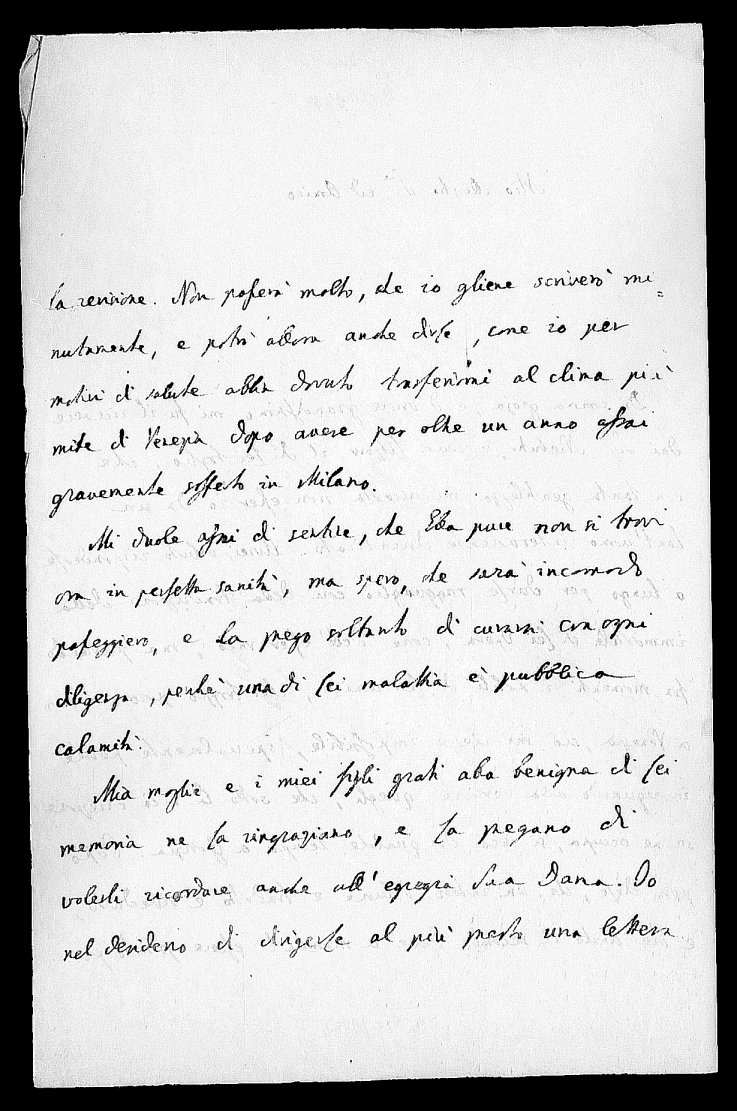 la revisione. Non passerà molto, che io gliene scriverò mi=
nutamente, e potrò allora anche dirle, come io per
motivi di salute abbia dovuto trasferirmi al clima più
mite di Venezia dopo avere per oltre un anno assai
gravemente sofferto in Milano.
Mi duole assai di sentire, che Ella pure non si trovi
ora in perfetta sanità, ma spero, che sarà incomodo
passeggiero, e La prego soltanto di curarsi con ogni
diligenza, perchè una di Lei malattia è pubblica
calamità.
Mia moglie e i miei figli grati alla benigna di Lei
memoria ne La ringraziano, e La pregano di
volerli ricordare anche all'egregia Sua Dama. Io
nel desiderio di dirigerle al più presto una lettera